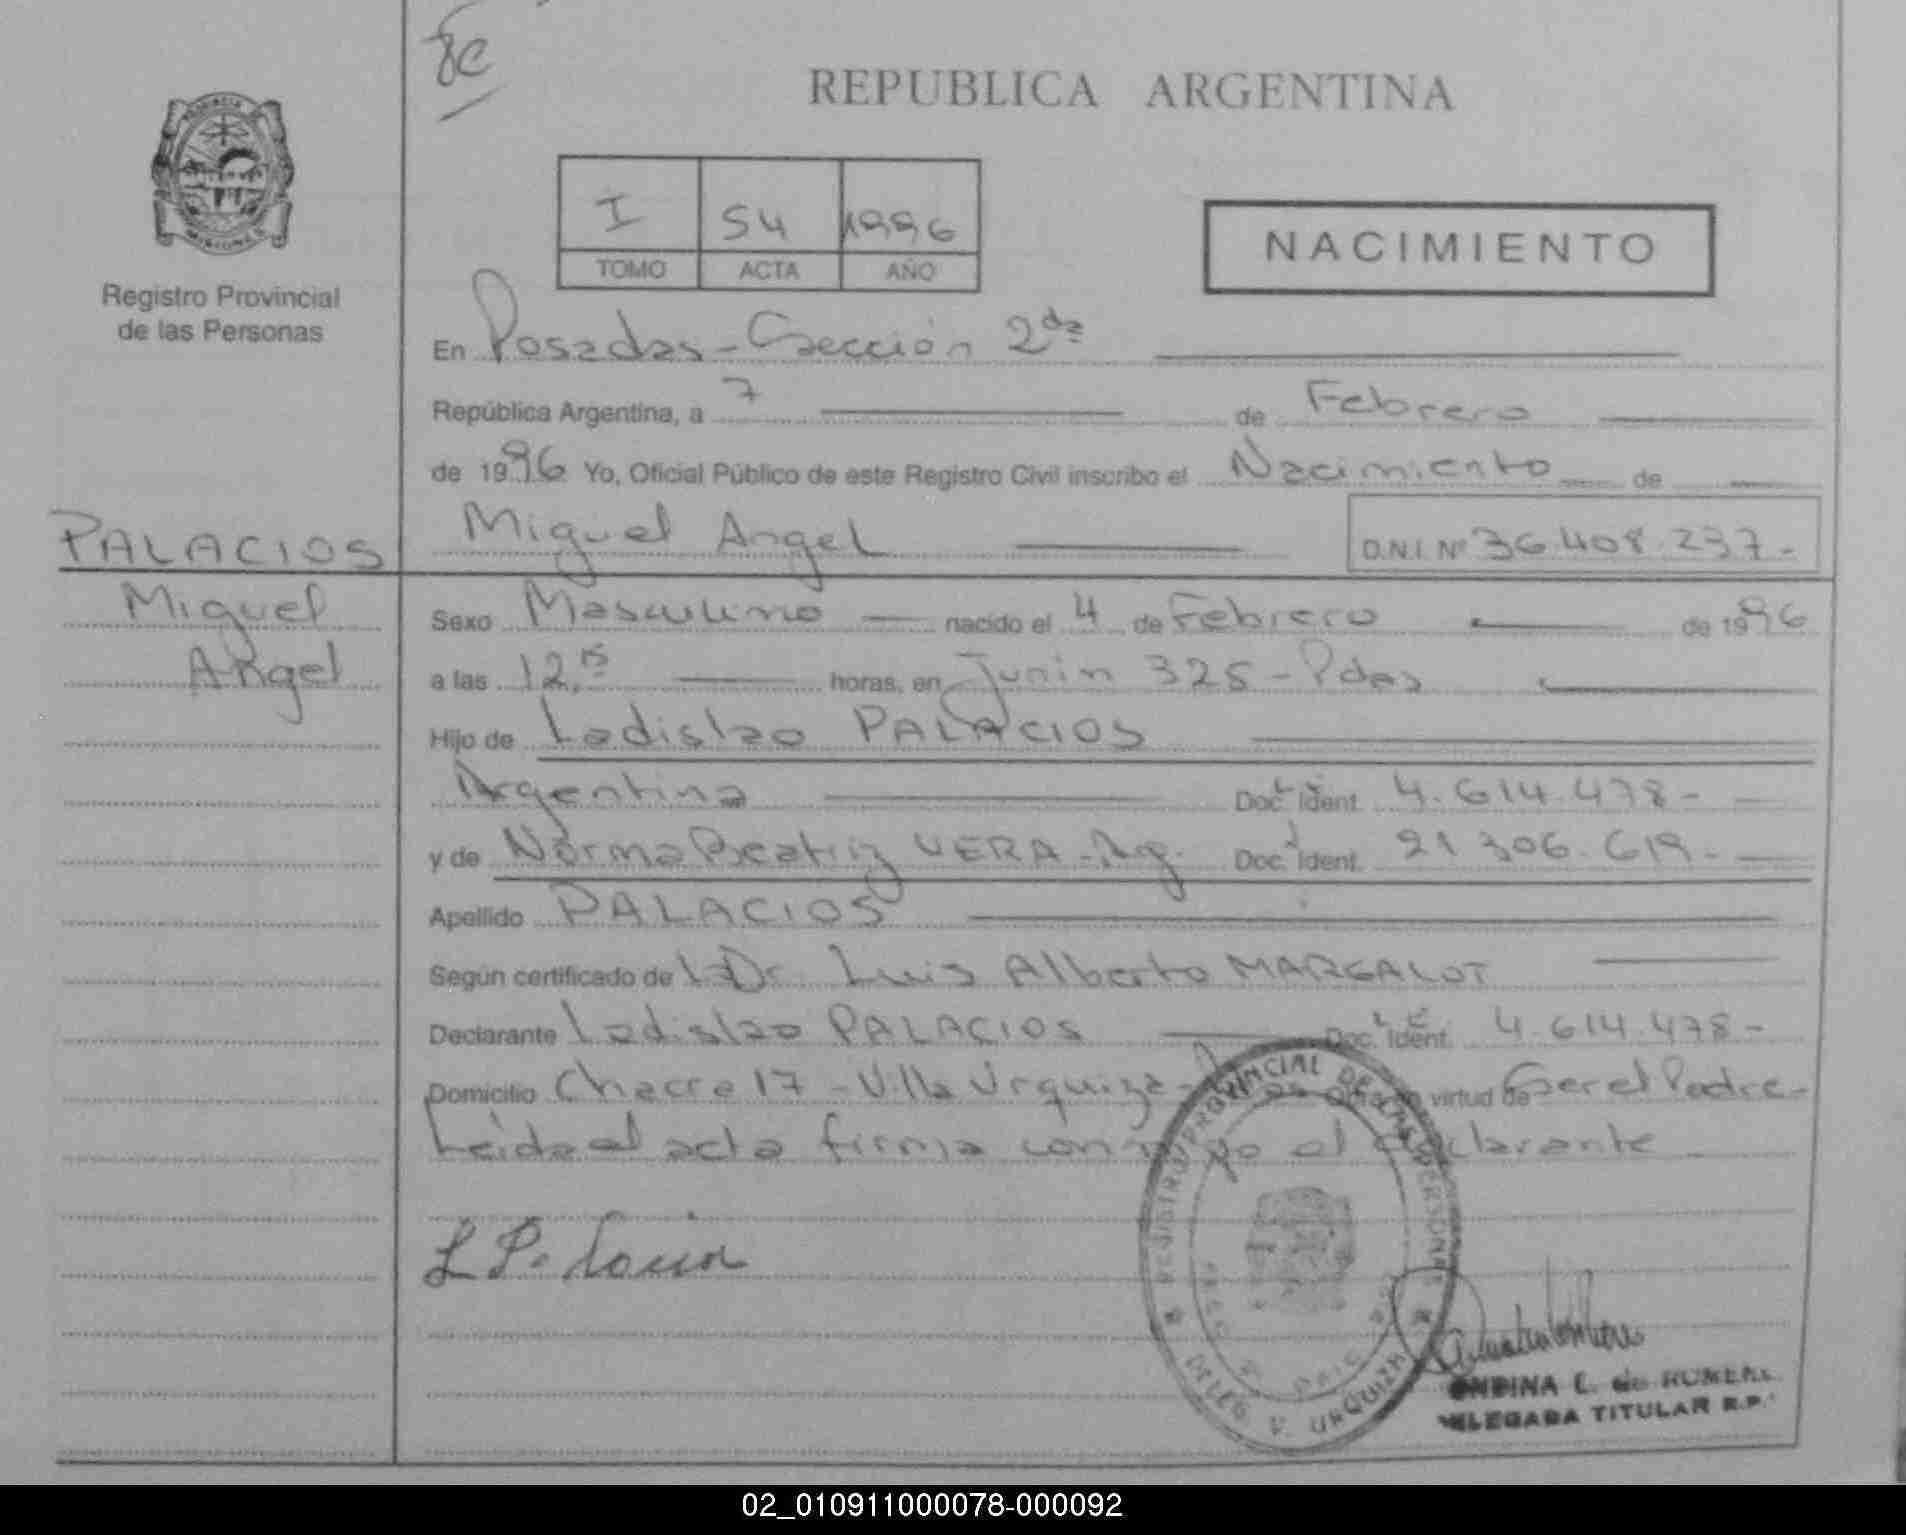 8c
REPUBLICA ARGENTINA
PROVINCIA
MISIONES
Registro Provincial
de las Personas
I 54 1996
TOMO ACTA AÑO
NACIMIENTO
En Posadas - Sección 2da
República Argentina, a 7 de Febrero
de 1996 Yo, Oficial Público de este Registro Civil inscribo el Nacimiento de
PALACIOS
Miguel Angel D.N.I. Nº 36.408.237.-
Miguel
Angel
Sexo Masculino nacido el 4 de Febrero de 1996
a las 12,15 horas, en Junin 325 - Pdas
Hijo de Ladislao PALACIOS
Argentina Doc. Ident. L E 4.614.478 -
y de Norma Beatriz VERA - Arg. Doc. Ident. 21 306. 619 -
Apellido PALACIOS
Según certificado de Dr. Luis Alberto MARGALOT
Declarante Ladislao PALACIOS Doc. Ident. L E 4.614.478 -
Domicilio Chacra 17 - Villa Urquiza - Obra en virtud de Ser el Padre -
Leida el acta firma conmigo el declarante
L Palacios
REGISTRO PROVINCIAL DE LAS PERSONAS
DELEG. V. URQUIZA
ONDINA E. de ROMERO
DELEGADA TITULAR R.P.
02_010911000078-000092